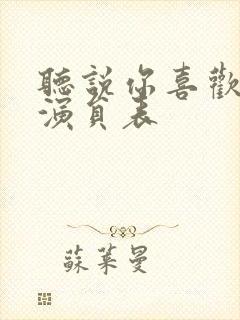 聽說你喜歡
演員表
蘇萊曼